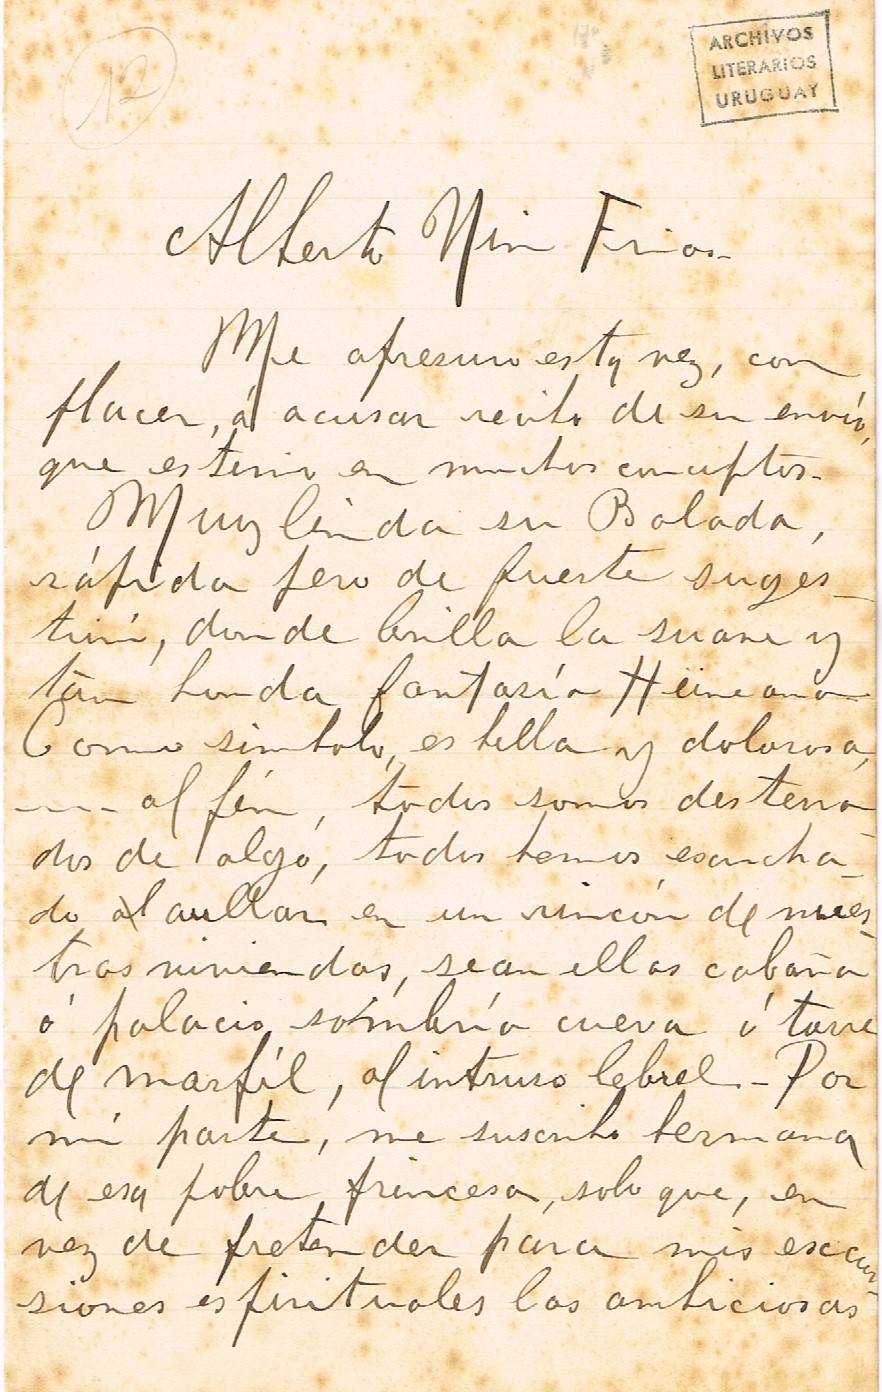 12
ARCHIVOS
LITERARIOS
URUGUAY
Alberto Nin Frias
Me apresuro esta vez, con
placer, á acusar recibo de su envío,
que estimo en muchos conceptos.
Muy linda su Balada,
rápida pero de fuerte suges-
tión, donde brilla la suave y
tan honda fantasía Heineana
Como símbolo, es bella y dolorosa,
---- al fin, todos somos desterra-
dos de algo, todos hemos escucha-
do aullar en un rincón de nues-
tras viviendas, sean ellas cabaña
ó palacio, sombría cueva ó torre
de marfil, al intruso lebrel - Por
mi parte, me suscribo hermana
de esa pobre princesa, solo que, en
vez de pretender para mis excur-
siones espirituales las ambiciosas